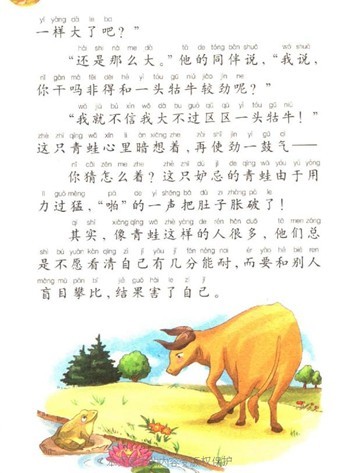 yí yàng dà le ba
一样大了吧？”
hái shì nà me dà tā de tóng bàn shuō wǒ shuō
“还是那么大。”他的同伴说，“我说，
nǐ gàn má fēi děi hé yì tóu gǔ niú jiào jìn ne
你干吗非得和一头牯牛较劲呢？”
wǒ jiù bú xìn wǒ dà bú guò qū qū yì tóu gǔ niú
“我就不信我大不过区区一头牯牛！”
zhè zhī qīng wā xīn lǐ àn xiǎng zhe zài shǐ jìn yì gǔ qì
这只青蛙心里暗想着，再使劲一鼓气——
nǐ cāi zěn me zhe zhè zhī dù jì de qīng wā yóu yú yòng
你猜怎么着？这只妒忌的青蛙由于用
lì guò měng pā de yì shēng bǎ dù zi zhàng pò le
力过猛，“啪”的一声把肚子胀破了！
qí shí xiàng qīng wā zhè yàng de rén hěn duō tā men zǒng
其实，像青蛙这样的人很多，他们总
shì bú yuàn kàn qīng zì jǐ yǒu jǐ fēn néng nài ér yào hé bié rén
是不愿看清自己有几分能耐，而要和别人
máng mù pān bǐ jié guǒ hài le zì jǐ
盲目攀比，结果害了自己。